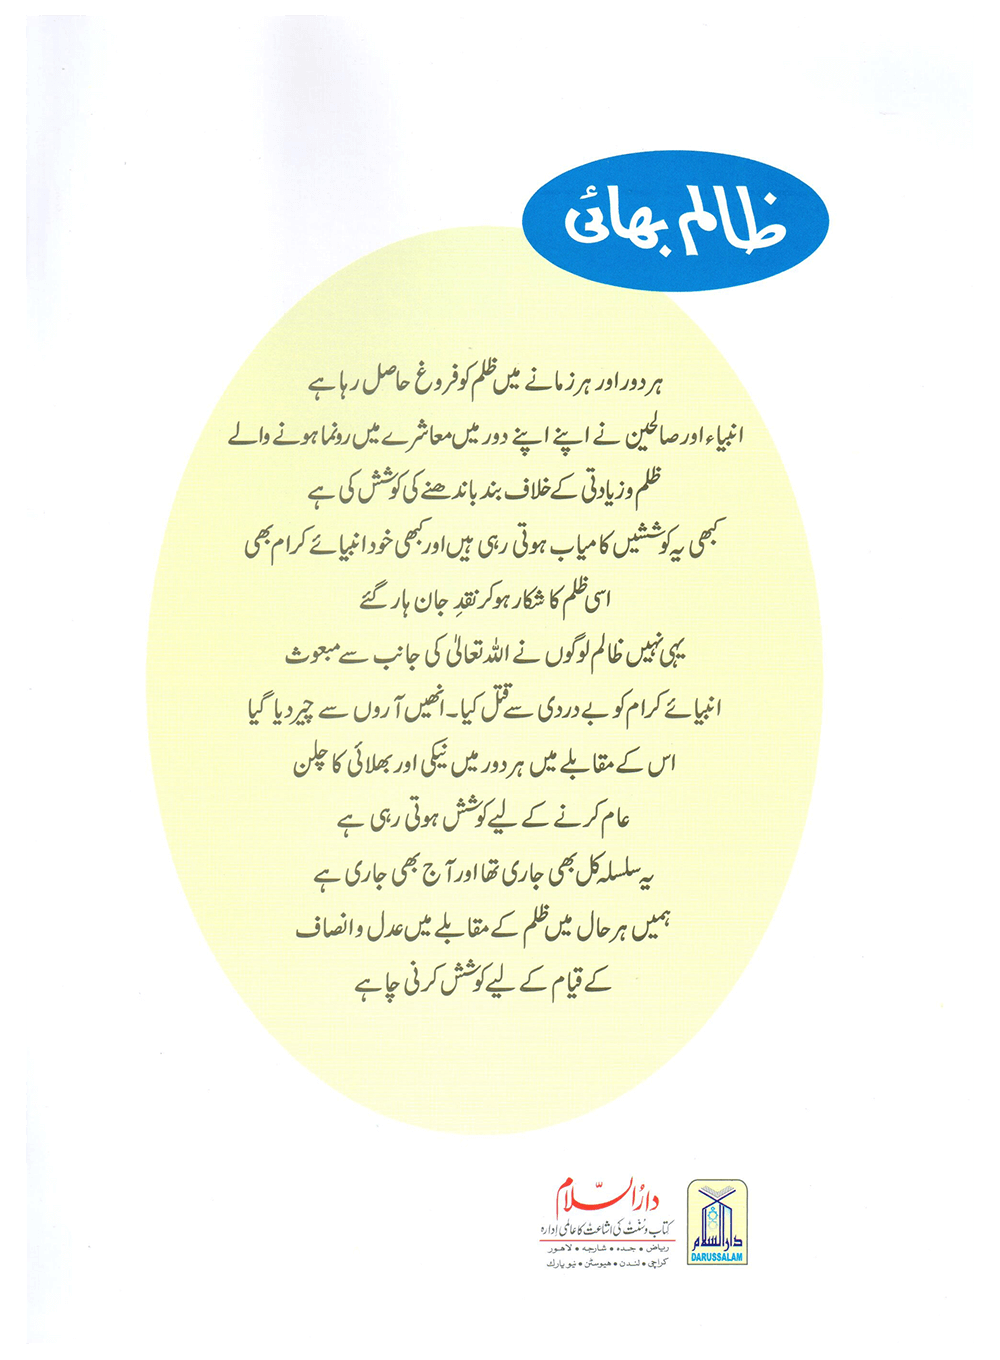 ظالم بھائی
ہر دور اور ہر زمانے میں ظلم کو فروغ حاصل رہا ہے
انبیاء اور صالحین نے اپنے اپنے دور میں معاشرے میں رونما ہونے والے
ظلم و زیادتی کے خلاف بند باندھنے کی کوشش کی ہے
کبھی یہ کوششیں کامیاب ہوتی رہی ہیں اور کبھی خود انبیائے کرام بھی
اسی ظلم کا شکار ہو کر نقدِ جان ہار گئے
یہی نہیں ظالم لوگوں نے اللہ تعالیٰ کی جانب سے مبعوث
انبیائے کرام کو بے دردی سے قتل کیا۔ انھیں آروں سے چیر دیا گیا
اس کے مقابلے میں ہر دور میں نیکی اور بھلائی کا چلن
عام کرنے کے لیے کوشش ہوتی رہی ہے
یہ سلسلہ کل بھی جاری تھا اور آج بھی جاری ہے
ہمیں ہر حال میں ظلم کے مقابلے میں عدل و انصاف
کے قیام کے لیے کوشش کرنی چاہے
دارُالسّلام
کتاب و سُنّت کی اشاعت کا عالمی اِدارہ
ریاض • جدہ • شارجہ • لاهور
کراچی • لندن • هیوسٹن • نیو یارك
دارالسلام
DARUSSALAM